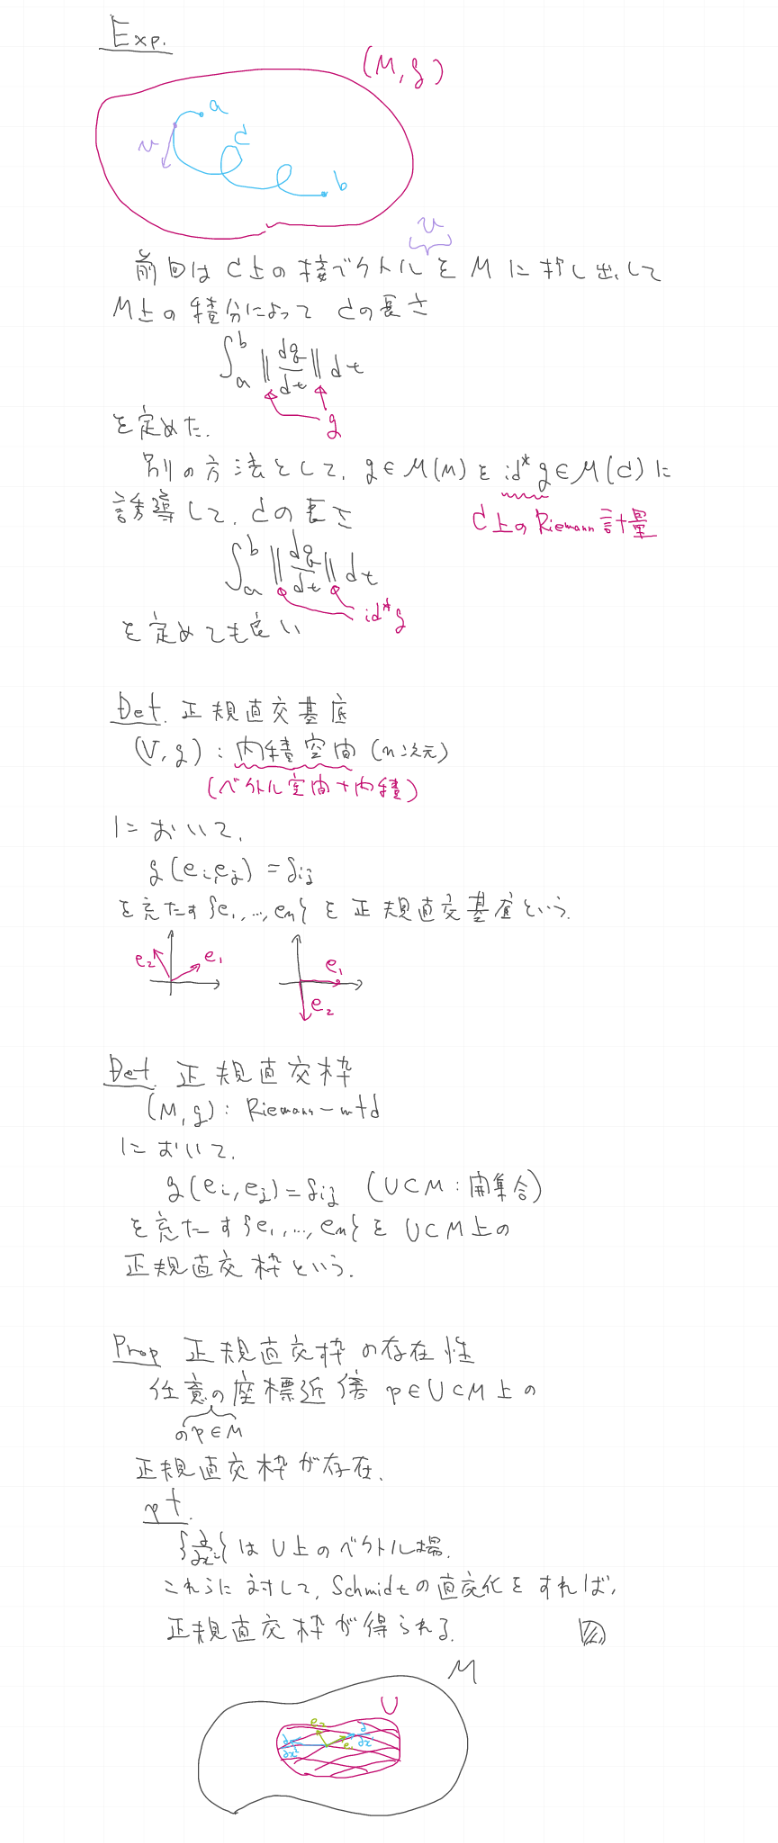 Exp.
(M, g)
a
c
v
b
v
前回は c上の接ベクトルを M に押し出して
M上の積分によって cの長さ
∫_a^b ‖dg/dt‖ dt
g
を定めた.
別の方法として, g∈M(M) を id*g∈M(c) に
誘導して, cの長さ
c上のRiemann計量
∫_a^b ‖dg/dt‖ dt
id*g
を定めても良い
Def. 正規直交基底
(V, g) : 内積空間 (n次元)
(ベクトル空間+内積)
において,
g(ei,ej) = δij
を充たす {e1, ..., en} を正規直交基底という.
e2 e1
e1
e2
Def. 正規直交枠
(M, g) : Riemann-mfd
において,
g(ei, ej) = δij (U⊂M : 開集合)
を充たす {e1, ..., en} を U⊂M上の
正規直交枠という.
Prop 正規直交枠の存在性
任意の座標近傍 p∈U⊂M上の
のp∈M
正規直交枠が存在.
pf.
{∂/∂x^i} は U上のベクトル場.
これらに対して, Schmidtの直交化をすれば,
正規直交枠が得られる.
M
U
e2
e1